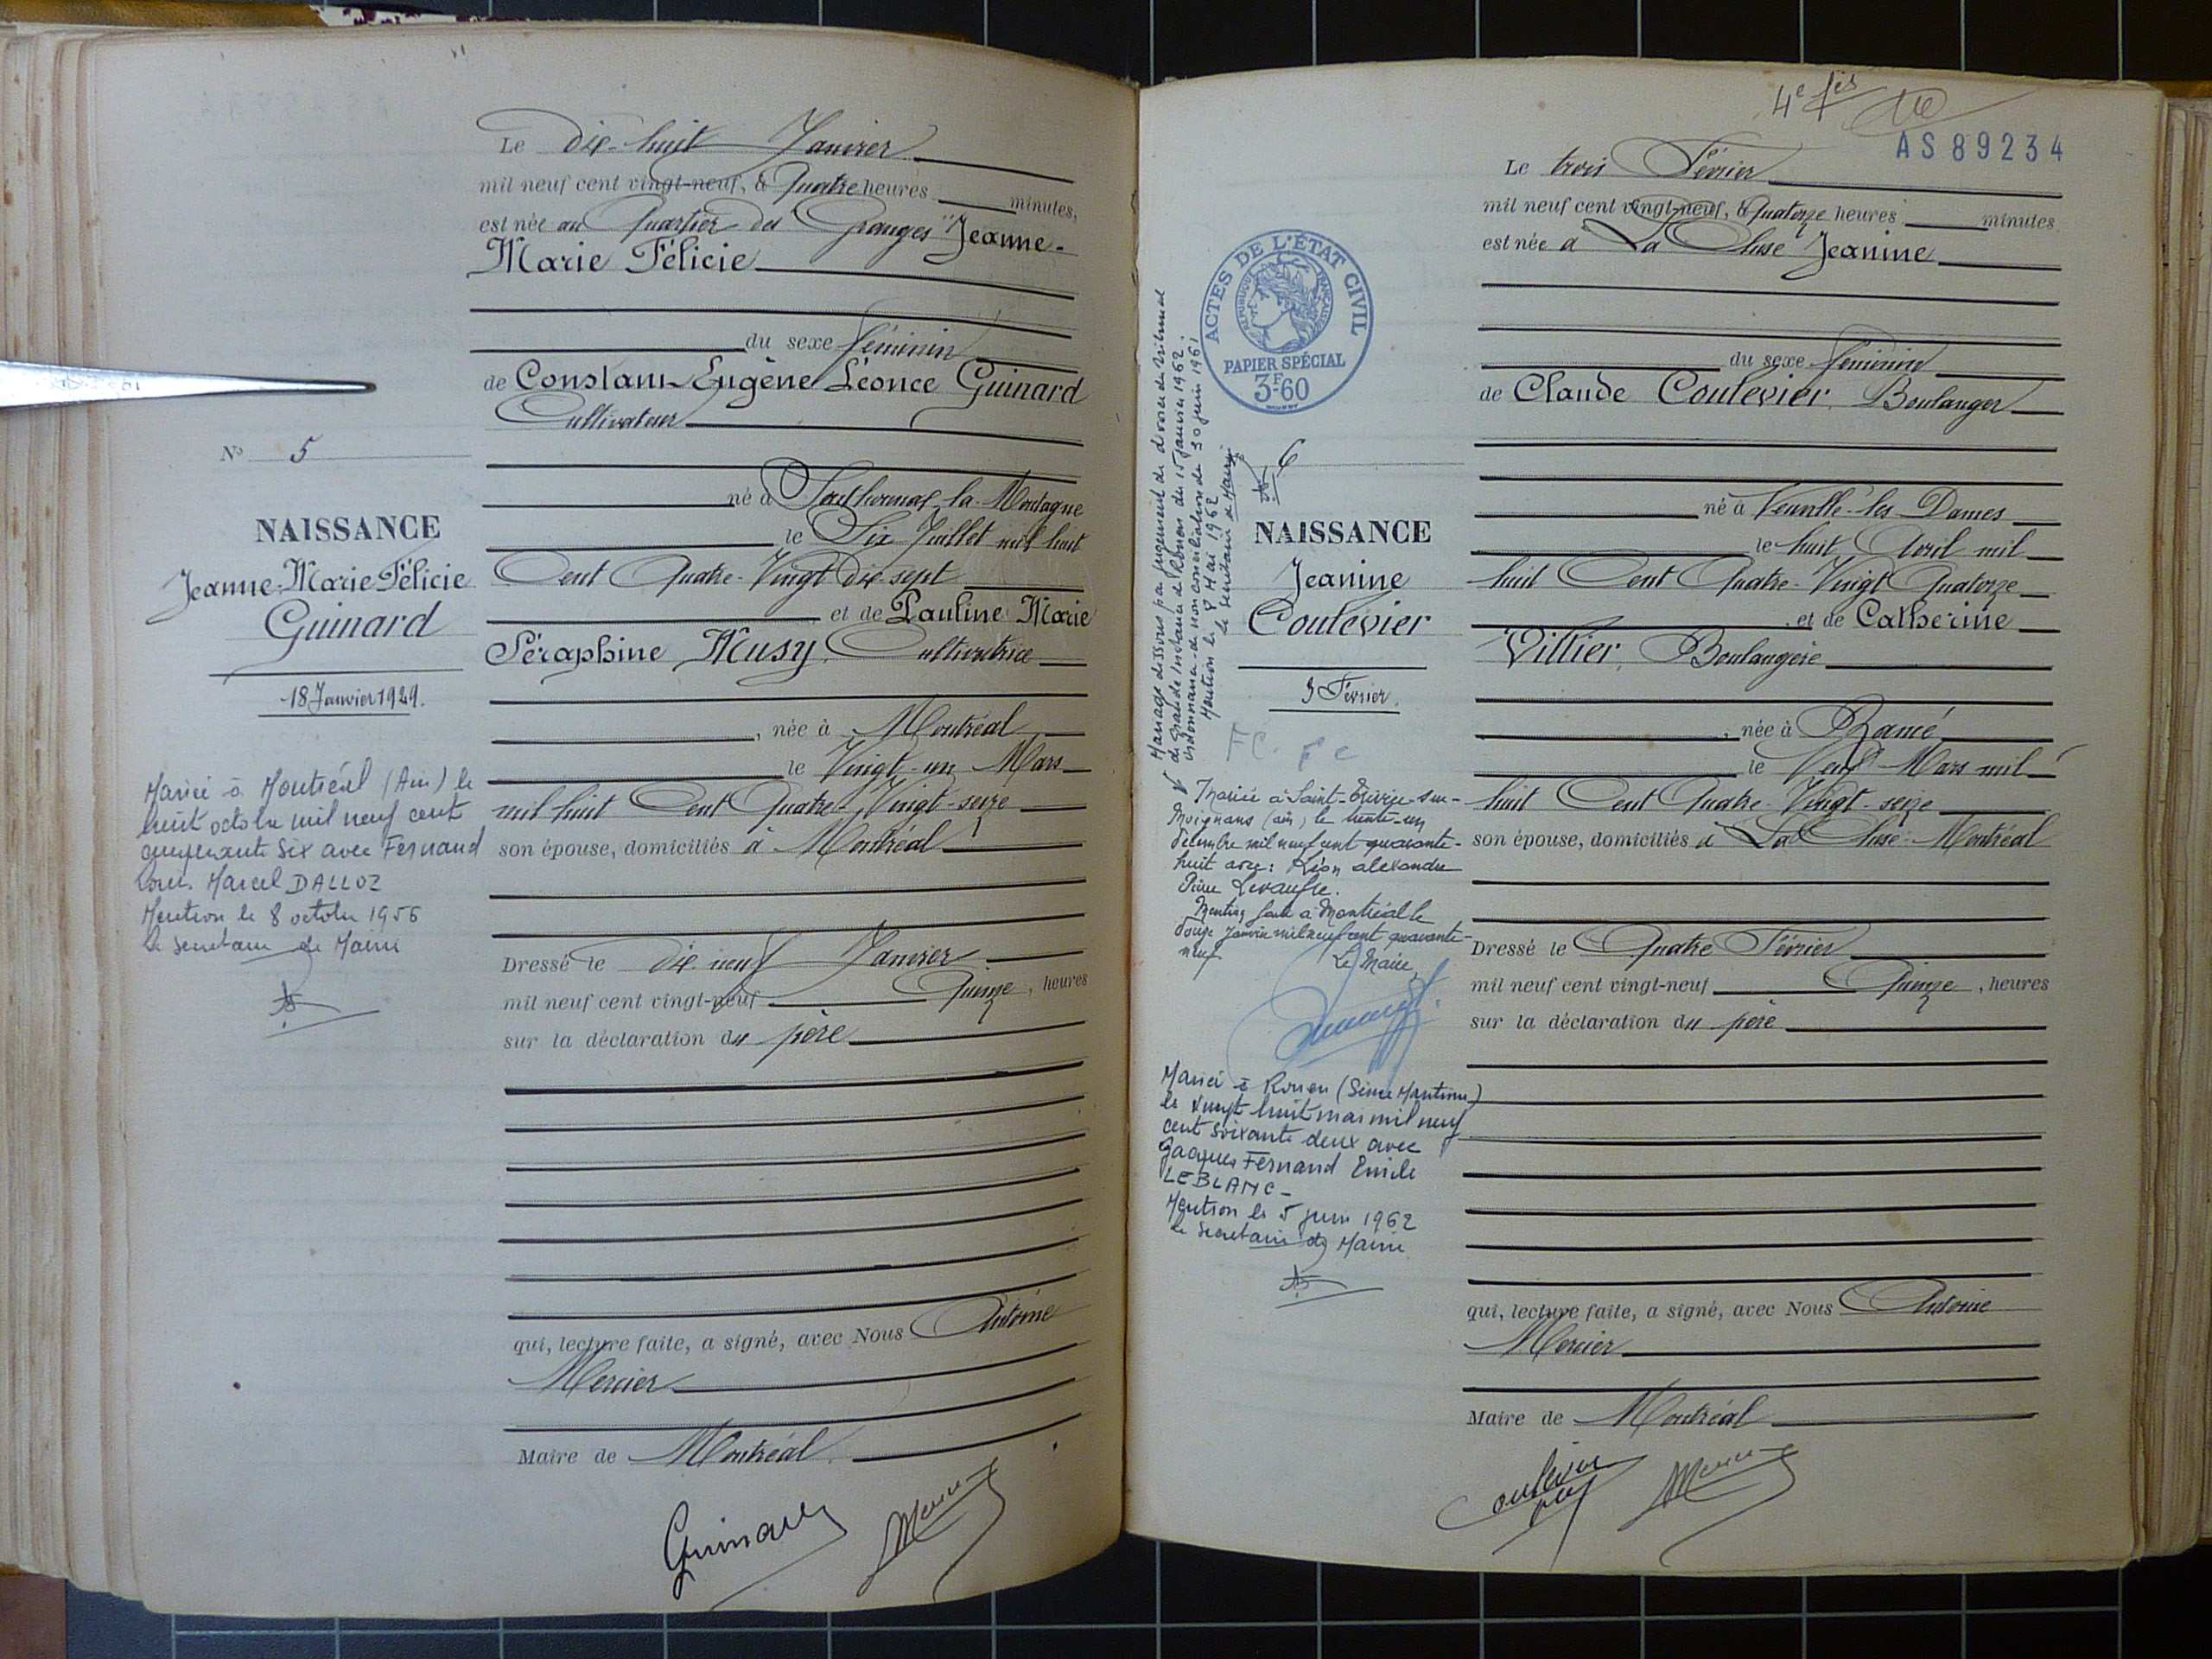 Le dix-huit Janvier
mil neuf cent vingt-neuf, à Quatre heures minutes,
est née au Quartier des Granges "Jeanne-
Marie Félicie
du sexe féminin
de Constant Eugène Léonce Guinard
Cultivateur
né à la Montagne
le Six Juillet mil huit
Cent Quatre-Vingt dix sept
et de Pauline Marie
Séraphine Musy, Cultivatrice
, née à Montréal
le Vingt-un Mars
mil huit Cent Quatre-Vingt-seize
son épouse, domiciliés à Montréal
Dressé le dix neuf Janvier
mil neuf cent vingt-neuf Quinze, heures
sur la déclaration du père
qui, lecture faite, a signé, avec Nous Antoine
Mercier
Maire de Montréal
Guinard Mercier
No 5
NAISSANCE
Jeanne-Marie Félicie
Guinard
18 Janvier 1929.
Mariée à Montréal (Ain) le
huit octobre mil neuf cent
cinquante six avec Fernand
Louis Marcel DALLOZ
Mention le 8 octobre 1956
le secrétaire de Mairie
4e fis
AS89234
Le trois Février
mil neuf cent vingt-neuf, à Quatorze heures minutes
est née à La Cluse Jeanine
du sexe féminin
de Claude Coulevier, Boulanger
né à Neuville-les Dames
le huit Avril mil
huit Cent Quatre-Vingt Quatorze
, et de Catherine
Villier, Boulangère
, née à Rancé
le Neuf Mars mil
huit Cent Quatre-Vingt-seize
son épouse, domiciliés à La Cluse-Montréal
Dressé le Quatre Février
mil neuf cent vingt-neuf Quinze, heures
sur la déclaration du père
qui, lecture faite, a signé, avec Nous Antoine
Mercier
Maire de Montréal
Coulevier Mercier
ACTES DE L'ÉTAT CIVIL
RÉPUBLIQUE FRANÇAISE
PAPIER SPÉCIAL
3F60
6
NAISSANCE
Jeanine
Coulevier
3 Février.
FC. FC
Mariage dissous par jugement de divorce du tribunal
de Grande Instance de Rouen du 15 janvier 1962.
ordonnance de non conciliation du 30 juin 1961
Mention le 8 Mai 1962
le secrétaire de Mairie
Mariée à Saint-Trivier-sur-
Moignans (ain) le trente-un
décembre mil neuf cent quarante-
huit avec: Léon alexandre
Pierre Levaufre.
Mention faite à Montréal le
douze Janvier mil neuf cent quarante-
neuf
Le Maire,
Mariée à Rouen (Seine Maritime)
le vingt huit mai mil neuf
cent soixante deux avec
Jacques Fernand Emile
LEBLANC-
Mention le 5 juin 1962
le secrétaire de Mairie